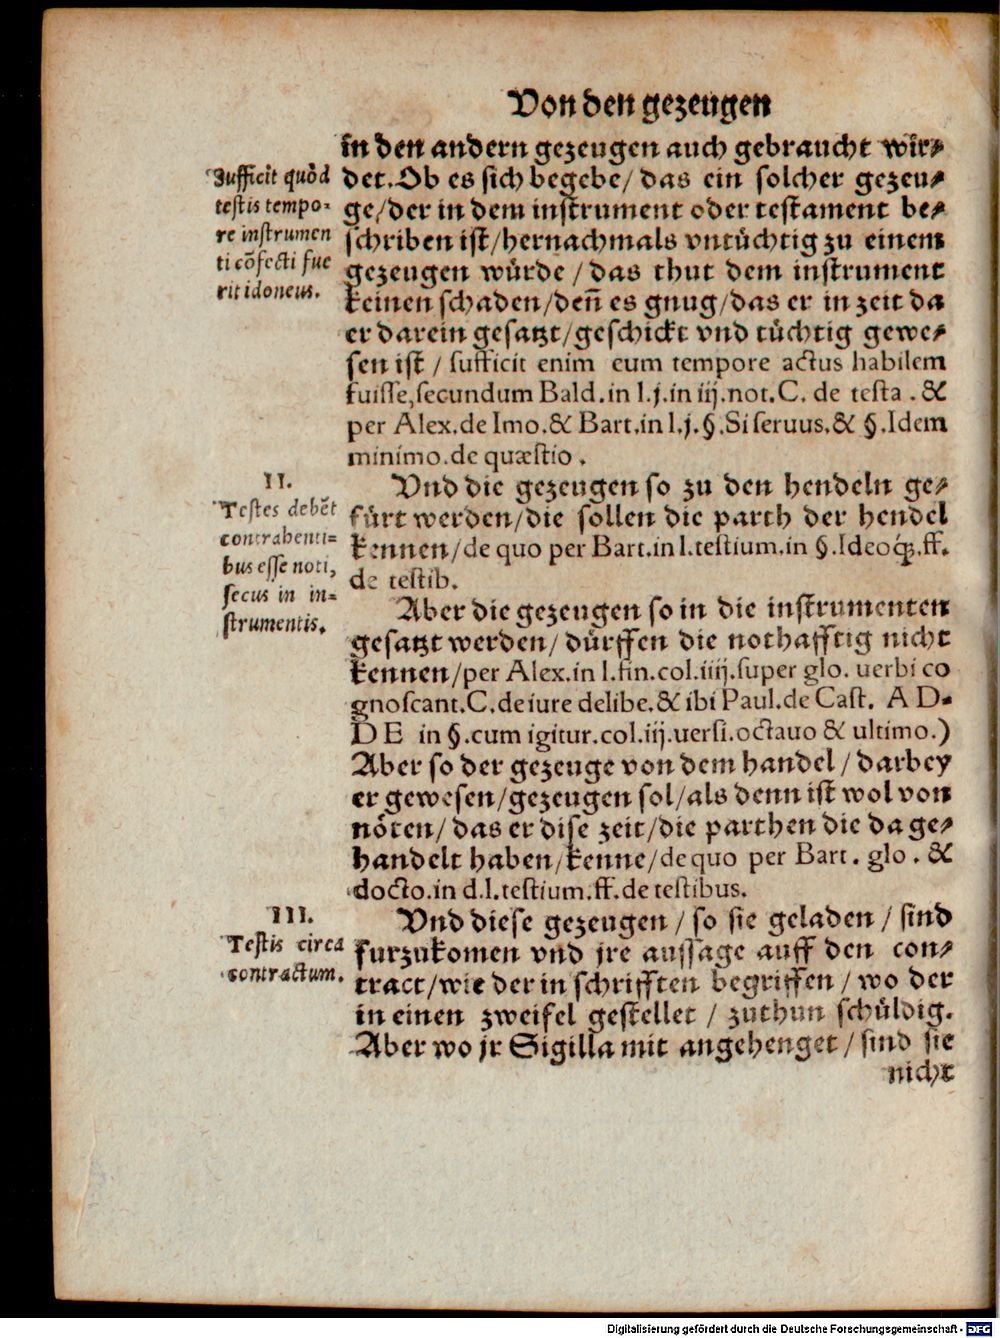 Von den gezeugen
in den andern gezeugen auch gebraucht wir⸗
det. Ob es sich begebe/ das ein solcher gezeu⸗
ge/ der in dem instrument oder testament be⸗
schriben ist/ hernachmals vntüchtig zu einem
gezeugen würde / das thut dem instrument
keinen schaden/ deñ es gnug/ das er in zeit da
er darein gesatzt/ geschickt vnd tüchtig gewe⸗
sen ist / sufficit enim eum tempore actus habilem
fuisse, secundum Bald. in l. j. in iij. not. C. de testa . &
per Alex. de Imo. & Bart. in l. j. §. Si seruus. & §. Idem
minimo. de quæstio .
Sufficit quòd
testis tempo-
re instrumen
ti cõfecti fue
rit idoneus.
Vnd die gezeugen so zu den hendeln ge⸗
fürt werden/ die sollen die parth der hendel
kennen/ de quo per Bart. in l. testium. in §. Ideoq́. ff.
de testib.
II.
Testes debẽt
contrahenti-
bus esse noti,
secus in in-
strumentis.
Aber die gezeugen so in die instrumenten
gesatzt werden/ dürffen die nothafftig nicht
kennen/ per Alex. in l. fin. col. iiij. super glo. uerbi co
gnoscant. C. de iure delibe. & ibi Paul. de Cast. A D-
D E in §. cum igitur. col. iij. uersi. octauo & ultimo.)
Aber so der gezeuge von dem handel / darbey
er gewesen/ gezeugen sol/ als denn ist wol von
nöten/ das er dise zeit/ die parthen die da ge⸗
handelt haben/ kenne/ de quo per Bart. glo . &
docto. in d. l. testium. ff. de testibus.
Vnd diese gezeugen / so sie geladen / sind
furzukomen vnd jre aussage auff den con⸗
tract/ wie der in schrifften begriffen / wo der
in einen zweifel gestellet / zuthun schüldig.
Aber wo jr Sigilla mit angehenget / sind sie
nicht
III.
Testis circa
contractum.
Digitalisierung gefördert durch die Deutsche Forschungsgemeinschaft - DFG